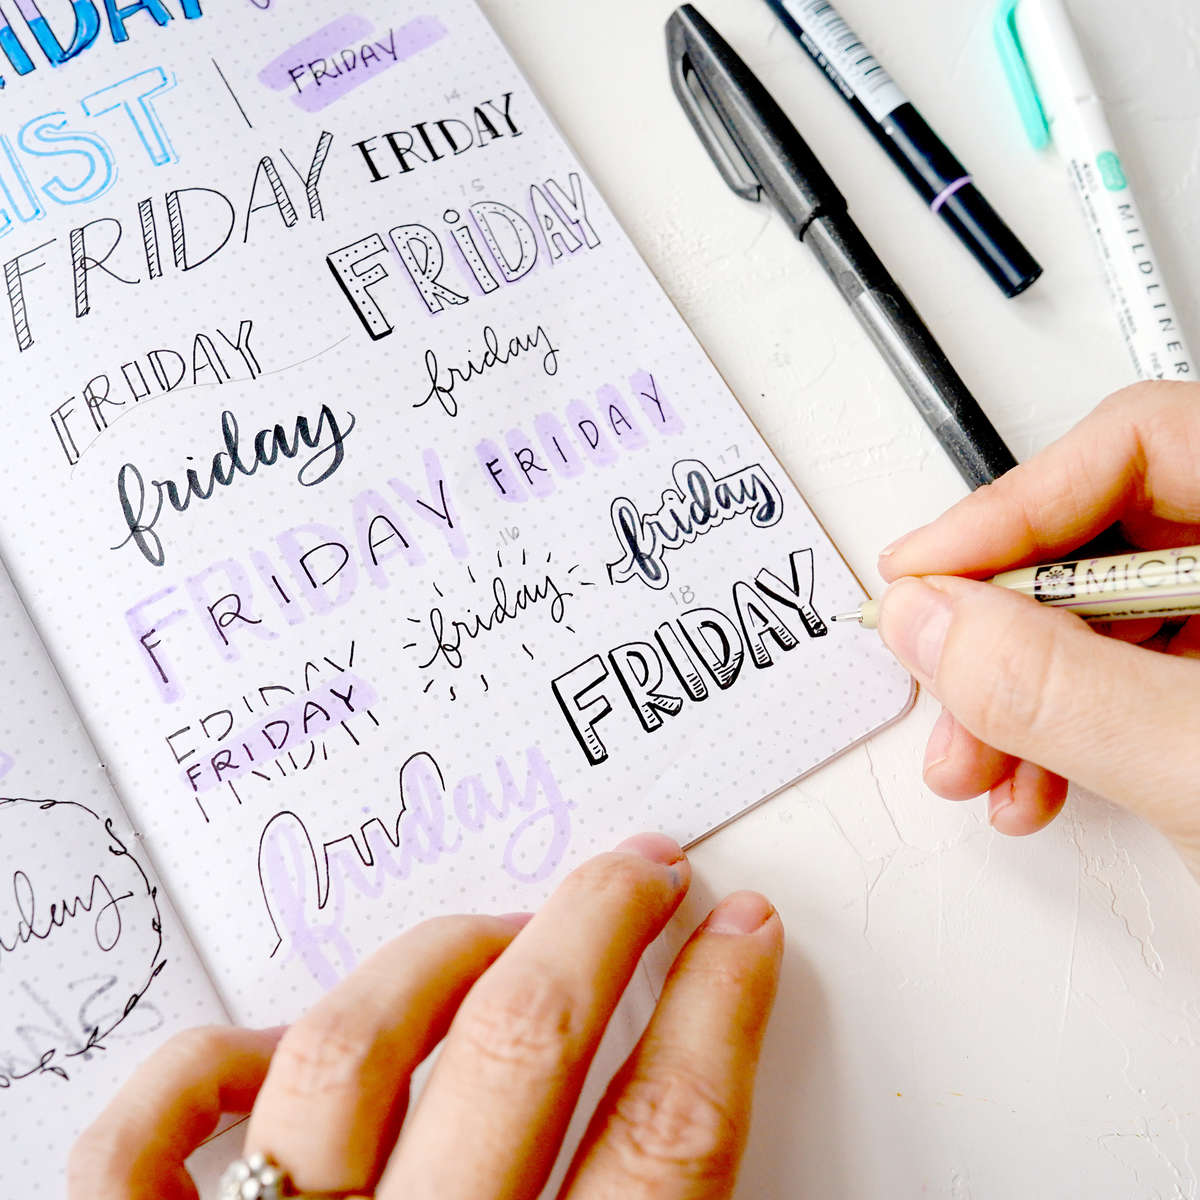 FRIDAY
LIST
FRIDAY
14
FRIDAY
FRIDAY
15
FRiDAY
FRIDAY
friday
friday
FRIDAY
17
friday
FRIDAY
16
friday
18
FRIDAY
FRIDAY
FRIDAY
friday
MILDLINER
MICR